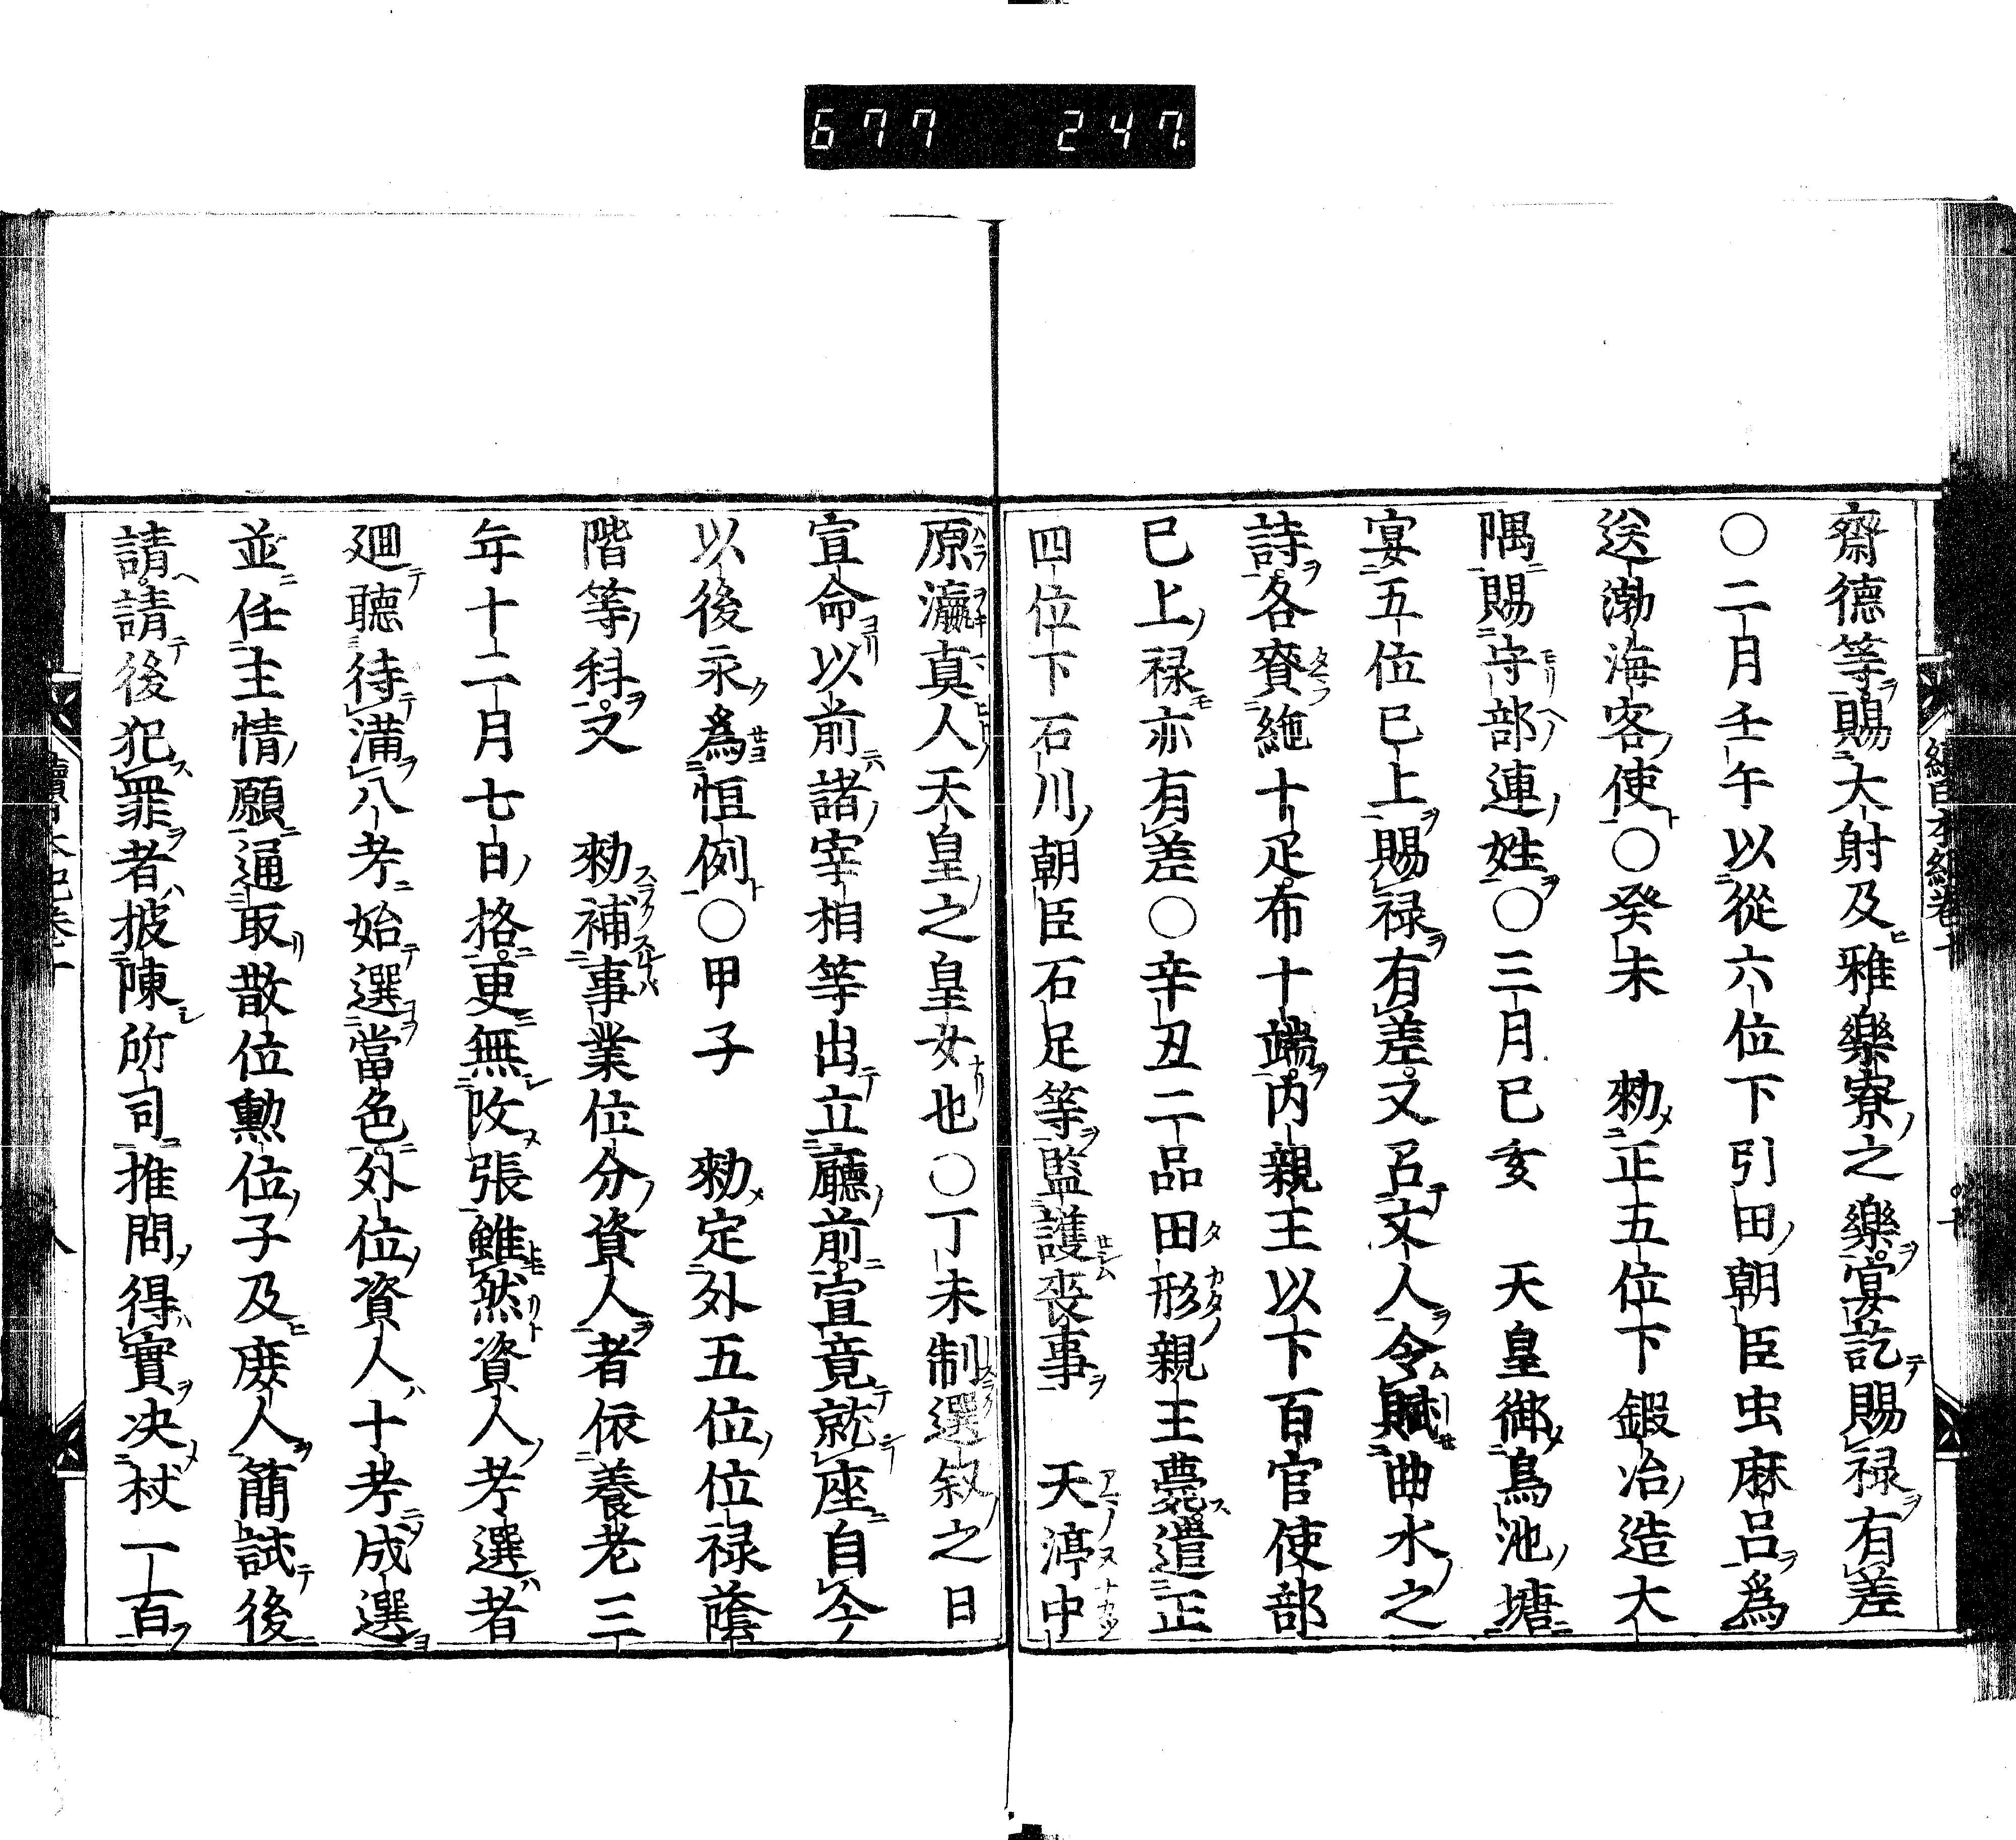 677 247
齋德等賜大射及雅樂寮之樂宴訖賜禄有差
○二月壬午以從六位下引田朝臣虫麻呂爲
送渤海客使○癸未 勑正五位下鍛冶造大
隅賜守部連姓○三月巳亥 天皇御鳥池塘
宴五位巳上賜禄有差又召文人令賦曲水之
詩各賚絁十疋布十端内親王以下百官使部
巳上禄亦有差○辛丑二品田形親王薨遣正
四位下石川朝臣石足等監護喪事 天渟中
原瀛真人天皇之皇女也○丁未制選叙之日
宣命以前諸宰相等出立廳前宣竟就座自今
以後永爲恒例○甲子 勑定外五位位禄蔭
階等科又 勑補事業位分資人者依養老三
年十二月七日格更無改張雖然資人考選者
廻聽待滿八考始選當色外位資人十考成選
並任主情願通取散位勳位子及庶人簡試後
請請後犯罪者披陳所司推問得實决杖一百